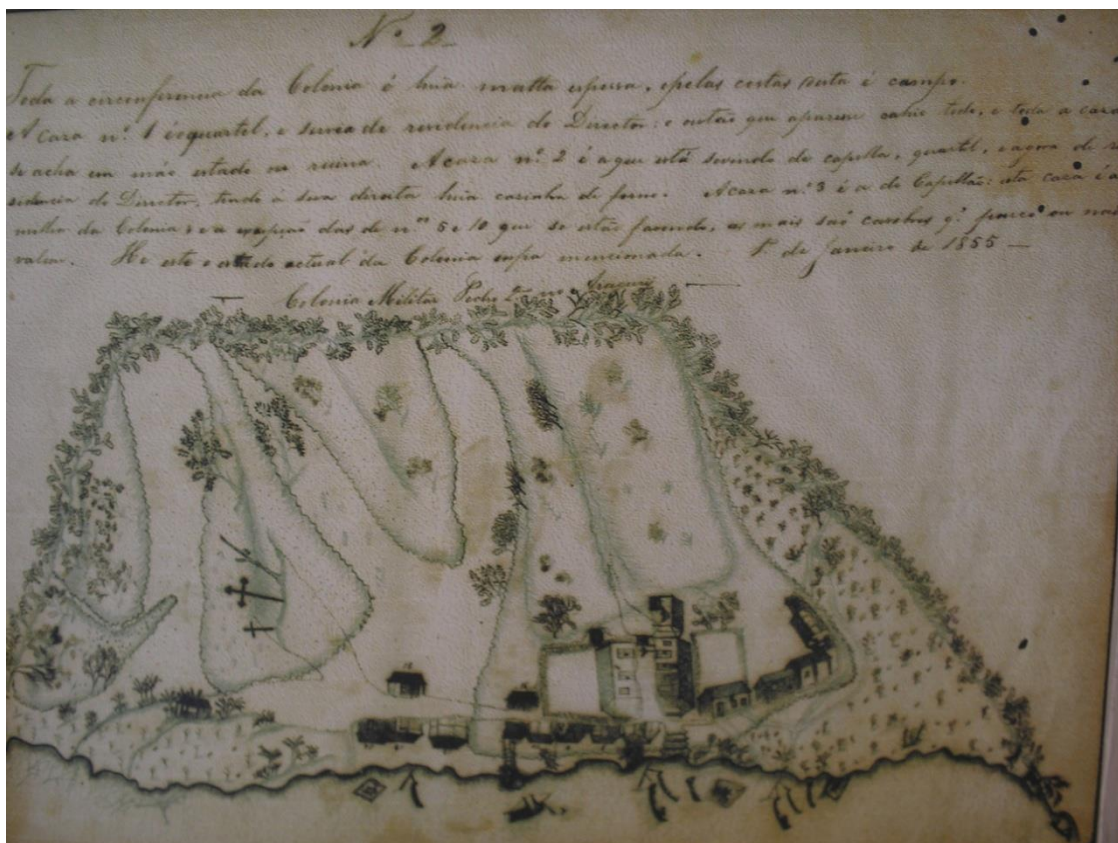 Nº 2
Toda a circonferencia da Colonia é huia matta espessa, e pelas costas desta é campo.
A caza nº 1 é o quartel, e servia de rezidencia do Director: o outão que aparece cahio todo, e toda a caza
se acha em máo estado ou ruina. A caza nº 2 é a que está servindo de capella, quartel, e agora de re
sidencia do Director, tendo á sua direita huia casinha de forno. A caza nº 3 é a do Capellão: esta caza é a
milhor da Colonia; e a excepção das de nos 5 e 10 que se estão fazendo, as mais são casebres q' pouco ou nada
valem. He este o estado actual da Colonia supra mencionada. 1º de Janeiro de 1855
Colonia Militar Pedro Araguari